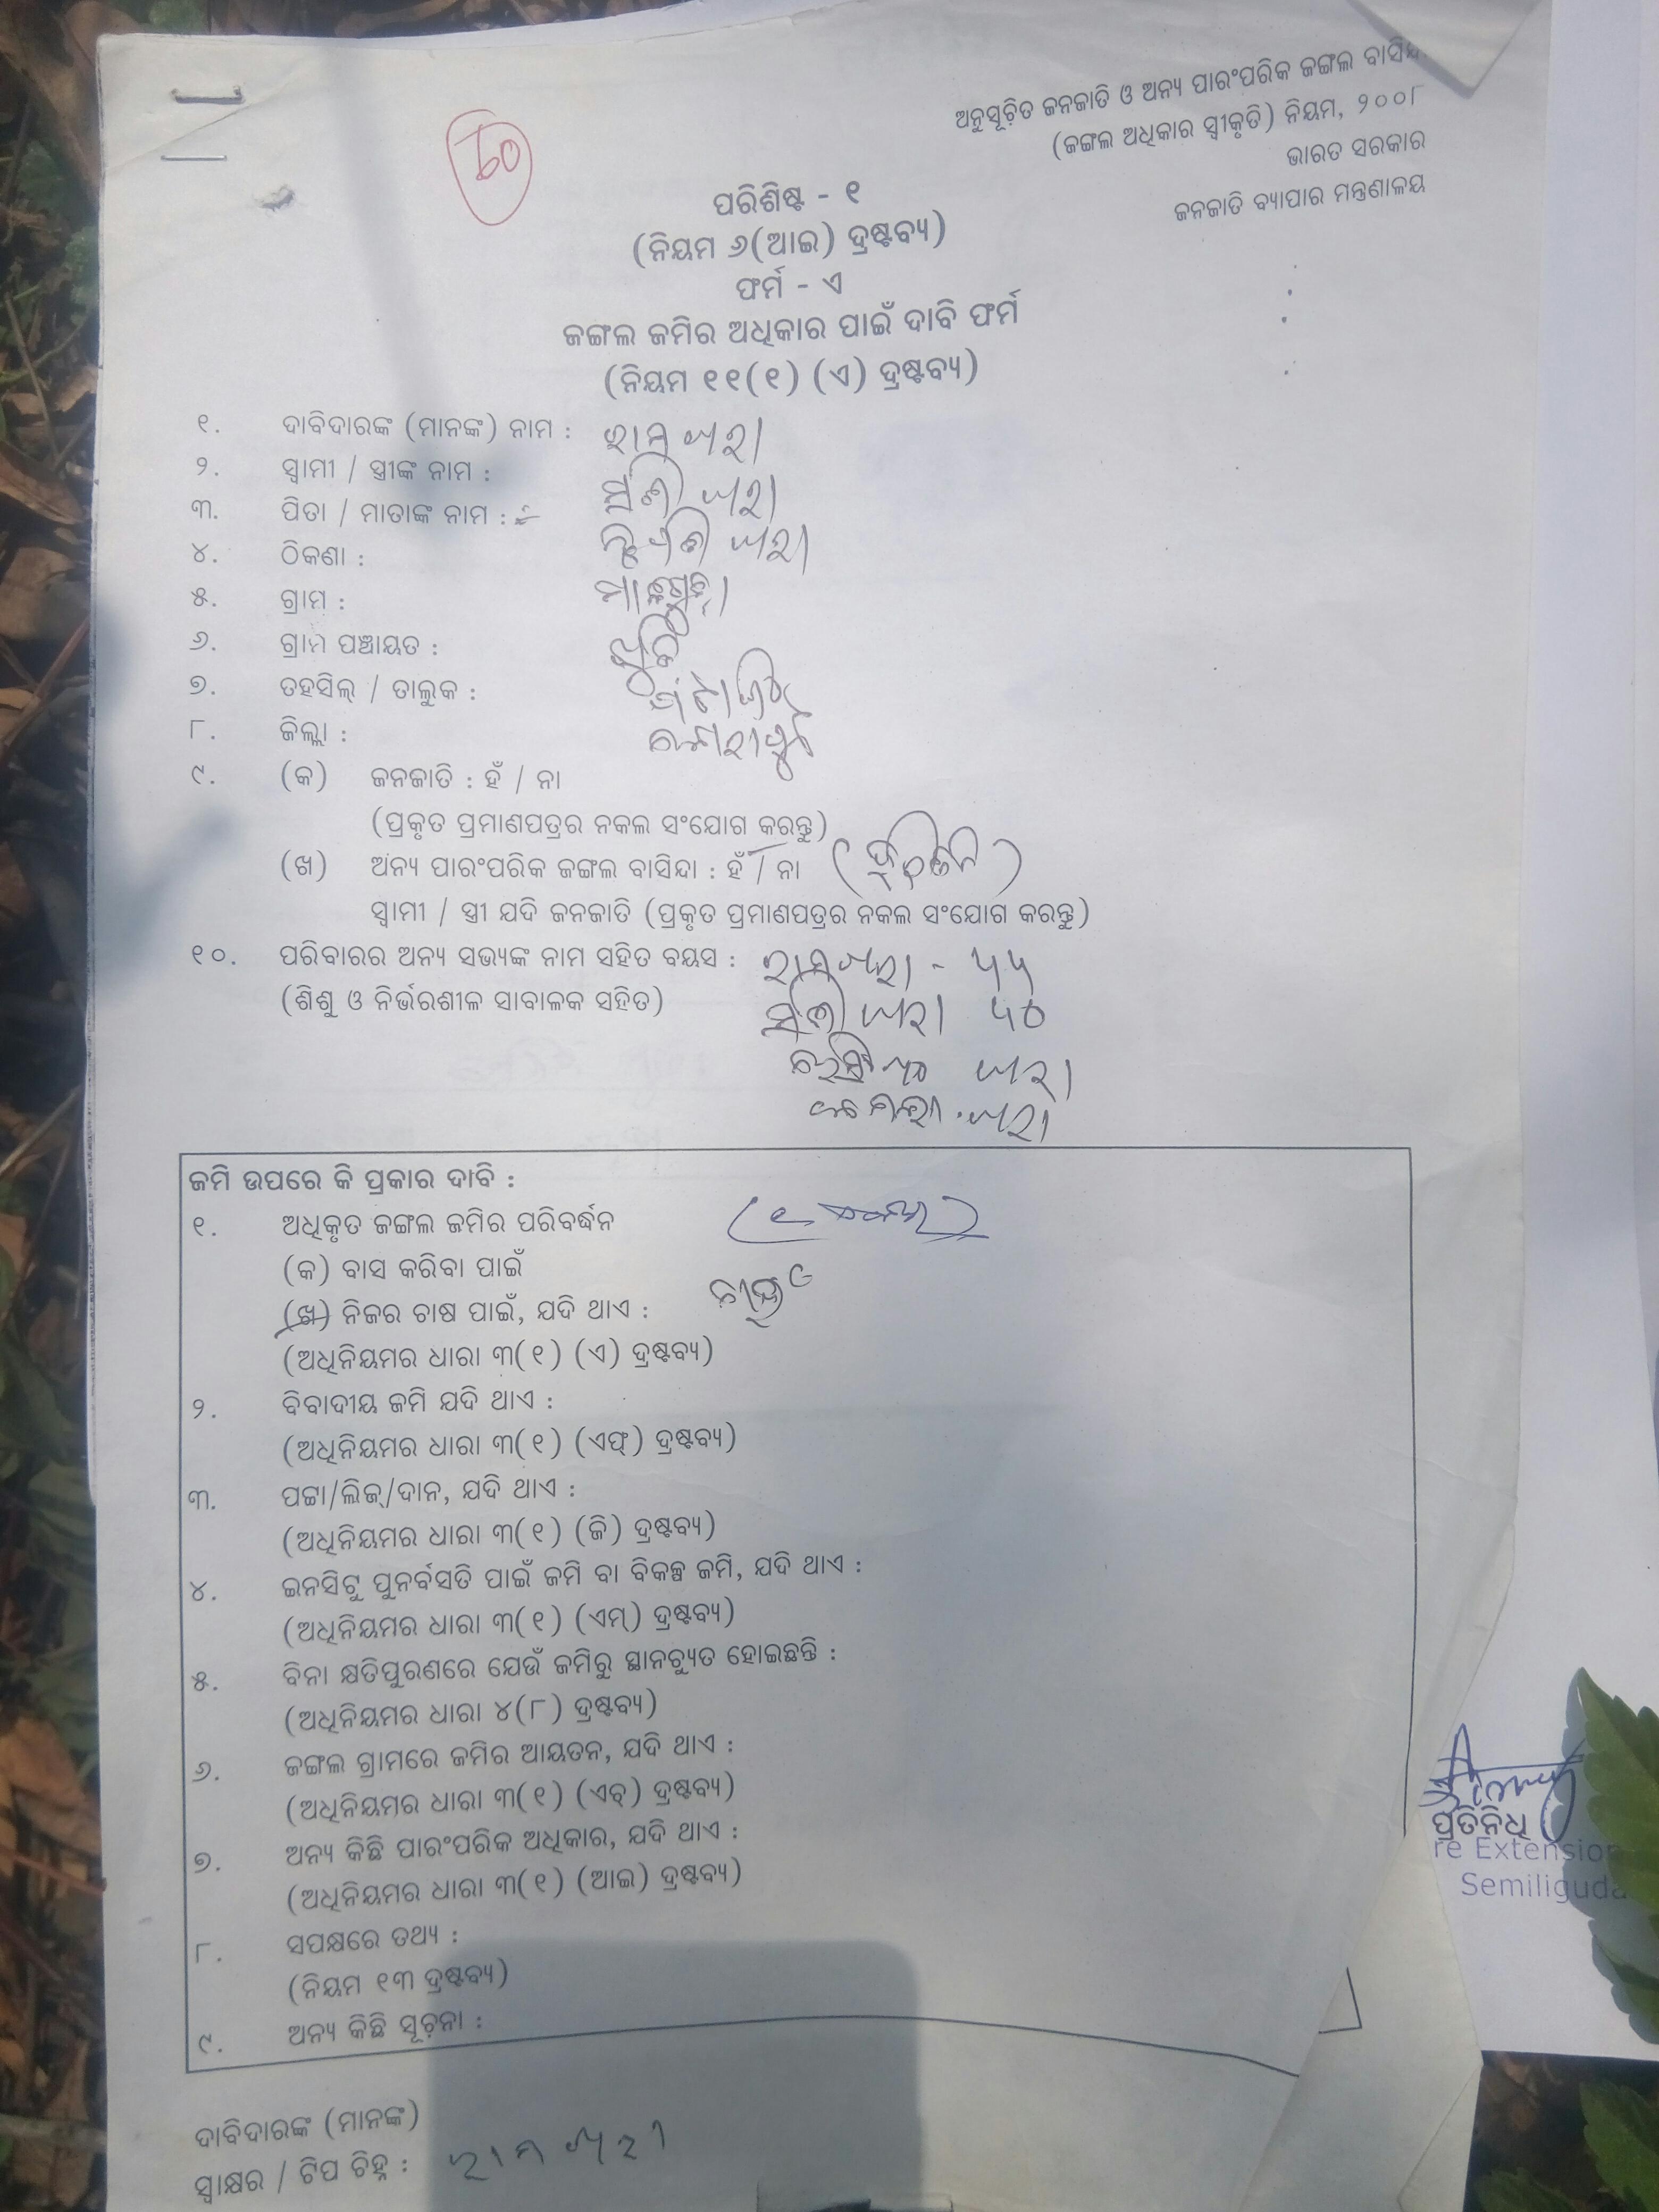 ଅନୁସୂଚିତ ଜନଜାତି ଓ ଅନ୍ୟ ପାରଂପରିକ ଜଙ୍ଗଲ
(ଜଙ୍ଗଲ ଅଧିକାର ସ୍ୱୀକୃତି) ନିୟମ, ୨୦୦୮
ଭାରତ ସରକାର
ଜନଜାତି ବ୍ୟାପାର ମନ୍ତ୍ରଣାଳୟ
ପରିଶିଷ୍ଟ - ୧
(ନିୟମ ୬(ଆଇ) ଦ୍ରଷ୍ଟବ୍ୟ)
ଫର୍ମ - ଏ
ଜଙ୍ଗଲ ଜମିର ଅଧିକାର ପାଇଁ ଦାବି ଫର୍ମ
(ନିୟମ ୧୧(୧) (ଏ) ଦ୍ରଷ୍ଟବ୍ୟ)
୧. ଦାବିଦାରଙ୍କ (ମାନଙ୍କ) ନାମ : ରାମ ଖରା
୨. ସ୍ୱାମୀ / ସ୍ତ୍ରୀଙ୍କ ନାମ : ଖରା
୩. ପିତା / ମାତାଙ୍କ ନାମ : ଖରା
୪. ଠିକଣା :
୫. ଗ୍ରାମ :
୬. ଗ୍ରାମ ପଞ୍ଚାୟତ :
୭. ତହସିଲ୍ / ତାଲୁକ :
୮. ଜିଲ୍ଲା : କୋରାପୁଟ
୯. (କ) ଜନଜାତି : ହଁ / ନା
(ପ୍ରକୃତ ପ୍ରମାଣପତ୍ରର ନକଲ ସଂଯୋଗ କରନ୍ତୁ)
(ଖ) ଅନ୍ୟ ପାରଂପରିକ ଜଙ୍ଗଲ ବାସିନ୍ଦା : ହଁ / ନା
ସ୍ୱାମୀ / ସ୍ତ୍ରୀ ଯଦି ଜନଜାତି (ପ୍ରକୃତ ପ୍ରମାଣପତ୍ରର ନକଲ ସଂଯୋଗ କରନ୍ତୁ)
୧୦. ପରିବାରର ଅନ୍ୟ ସଭ୍ୟଙ୍କ ନାମ ସହିତ ବୟସ : ରାମ ଖରା - ୫୫
(ଶିଶୁ ଓ ନିର୍ଭରଶୀଳ ସାବାଳକ ସହିତ) ଖରା ୫୦
ଖରା
ଖରା
ଜମି ଉପରେ କି ପ୍ରକାର ଦାବି :
୧. ଅଧିକୃତ ଜଙ୍ଗଲ ଜମିର ପରିବର୍ଦ୍ଧନ
(କ) ବାସ କରିବା ପାଇଁ
(ଖ) ନିଜର ଚାଷ ପାଇଁ, ଯଦି ଥାଏ :
(ଅଧିନିୟମର ଧାରା ୩(୧) (ଏ) ଦ୍ରଷ୍ଟବ୍ୟ)
୨. ବିବାଦୀୟ ଜମି ଯଦି ଥାଏ :
(ଅଧିନିୟମର ଧାରା ୩(୧) (ଏଫ୍) ଦ୍ରଷ୍ଟବ୍ୟ)
୩. ପଟ୍ଟା/ଲିଜ୍/ଦାନ, ଯଦି ଥାଏ :
(ଅଧିନିୟମର ଧାରା ୩(୧) (ଜି) ଦ୍ରଷ୍ଟବ୍ୟ)
୪. ଇନସିଟୁ ପୁନର୍ବସତି ପାଇଁ ଜମି ବା ବିକଳ୍ପ ଜମି, ଯଦି ଥାଏ :
(ଅଧିନିୟମର ଧାରା ୩(୧) (ଏମ୍) ଦ୍ରଷ୍ଟବ୍ୟ)
୫. ବିନା କ୍ଷତିପୂରଣରେ ଯେଉଁ ଜମିରୁ ସ୍ଥାନଚ୍ୟୁତ ହୋଇଛନ୍ତି :
(ଅଧିନିୟମର ଧାରା ୪(୮) ଦ୍ରଷ୍ଟବ୍ୟ)
୬. ଜଙ୍ଗଲ ଗ୍ରାମରେ ଜମିର ଆୟତନ, ଯଦି ଥାଏ :
(ଅଧିନିୟମର ଧାରା ୩(୧) (ଏଚ୍) ଦ୍ରଷ୍ଟବ୍ୟ)
୭. ଅନ୍ୟ କିଛି ପାରଂପରିକ ଅଧିକାର, ଯଦି ଥାଏ :
(ଅଧିନିୟମର ଧାରା ୩(୧) (ଆଇ) ଦ୍ରଷ୍ଟବ୍ୟ)
୮. ସପକ୍ଷରେ ତଥ୍ୟ :
(ନିୟମ ୧୩ ଦ୍ରଷ୍ଟବ୍ୟ)
୯. ଅନ୍ୟ କିଛି ସୂଚନା :
ପ୍ରତିନିଧି
re Extension
Semiliguda
ଦାବିଦାରଙ୍କ (ମାନଙ୍କ)
ସ୍ୱାକ୍ଷର / ଟିପ ଚିହ୍ନ : ରାମ ଖରା